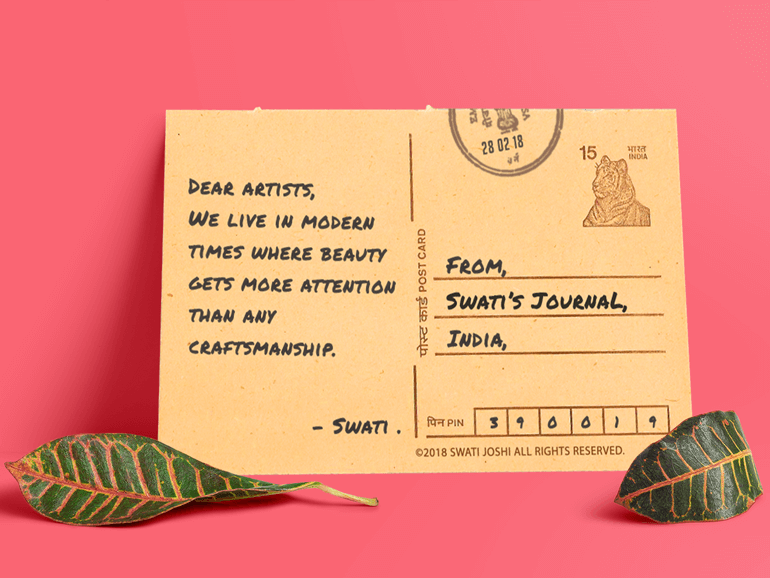 DEAR ARTISTS,
WE LIVE IN MODERN
TIMES WHERE BEAUTY
GETS MORE ATTENTION
THAN ANY
CRAFTSMANSHIP.
- SWATI .
पोस्ट कार्ड POST CARD
28 02 18
15 भारत
INDIA
FROM,
SWATI'S JOURNAL,
INDIA,
पिन PIN 3 9 0 0 1 9
©2018 SWATI JOSHI ALL RIGHTS RESERVED.